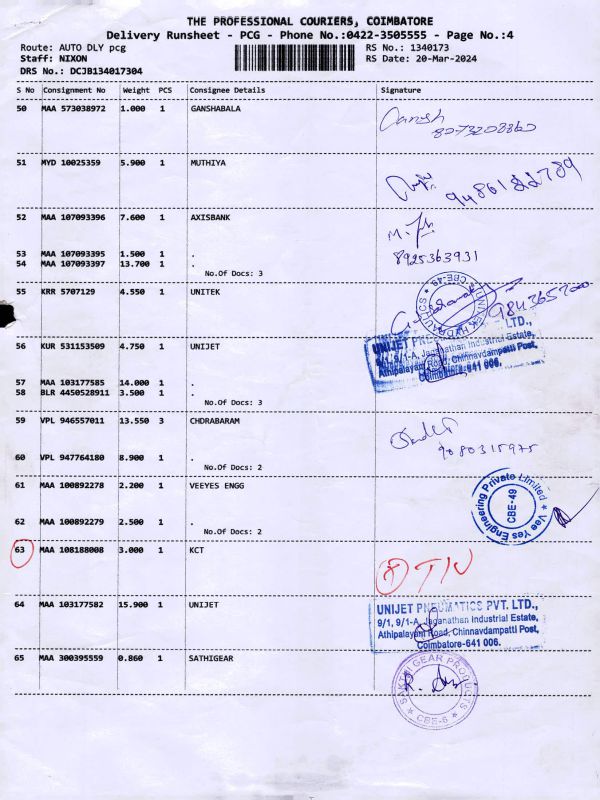 THE PROFESSIONAL COURIERS, COIMBATORE
Delivery Runsheet - PCG - Phone No.:0422-3505555 - Page No.:4
Route: AUTO DLY pcg RS No.: 1340173
Staff: NIXON RS Date: 20-Mar-2024
DRS No.: DCJB134017304
S No Consignment No Weight PCS Consignee Details Signature
50 MAA 573038972 1.000 1 GANSHABALA
Ganesh
8073208860
51 MYD 10025359 5.900 1 MUTHIYA
9486182789
52 MAA 107093396 7.600 1 AXISBANK
53 MAA 107093395 1.500 1 .
8925363931
54 MAA 107093397 13.700 1 .
No.Of Docs: 3
55 KRR 5707129 4.550 1 UNITEK
CBE-49
56 KUR 531153509 4.750 1 UNIJET
UNIJET PNEUMATICS PVT. LTD.,
9/1, 9/1-A, Jaganathan Industrial Estate,
Athipalayam Road, Chinnavdampatti Post,
Coimbatore-641 006.
57 MAA 103177585 14.000 1 .
58 BLR 4450528911 3.500 1 .
No.Of Docs: 3
59 VPL 946557011 13.550 3 CHDRABARAM
9080315975
60 VPL 947764180 8.900 1 .
No.Of Docs: 2
61 MAA 100892278 2.200 1 VEEYES ENGG
Vee Yes Engineering Private Limited
CBE-49
62 MAA 100892279 2.500 1 .
No.Of Docs: 2
63 MAA 108188008 3.000 1 KCT
64 MAA 103177582 15.900 1 UNIJET
UNIJET PNEUMATICS PVT. LTD.,
9/1, 9/1-A, Jaganathan Industrial Estate,
Athipalayam Road, Chinnavdampatti Post,
Coimbatore-641 006.
65 MAA 300395559 0.860 1 SATHIGEAR
SAKTHI GEAR PRODUCTS
CBE-6